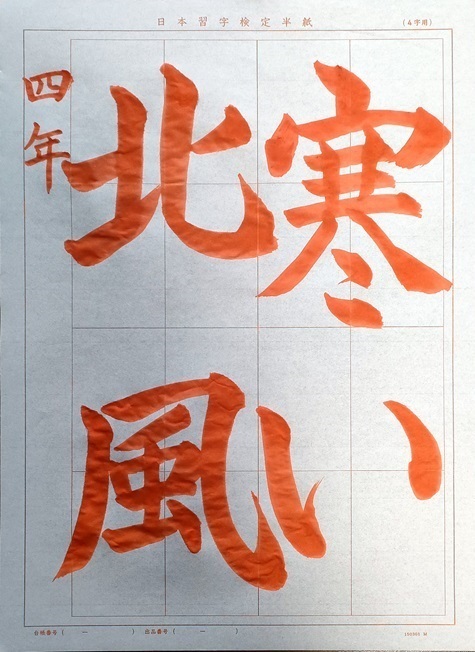 日本習字検定半紙
(4字用)
寒い
北風
四年
台帳番号 ( ー ) 出品番号 ( ー )